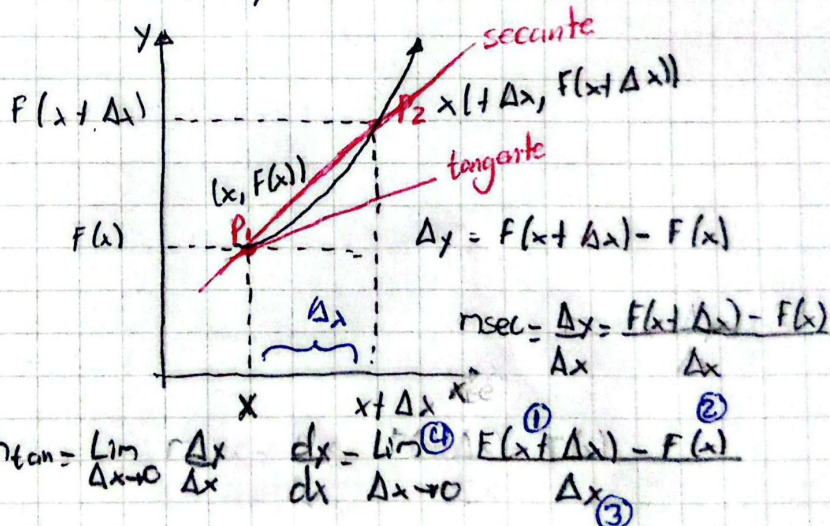 y
secante
F(x + Δx)
P2 x(+Δx, F(x+Δx))
tangente
(x, F(x))
P1
F(x)
Δy = F(x+Δx) - F(x)
Δx
msec = Δy/Δx = F(x+Δx) - F(x)/Δx
x x+Δx x
① ②
mtan = Lim Δx→0 Δy/Δx dx/dx = Lim ④ Δx→0 F(x+Δx) - F(x)/Δx
③